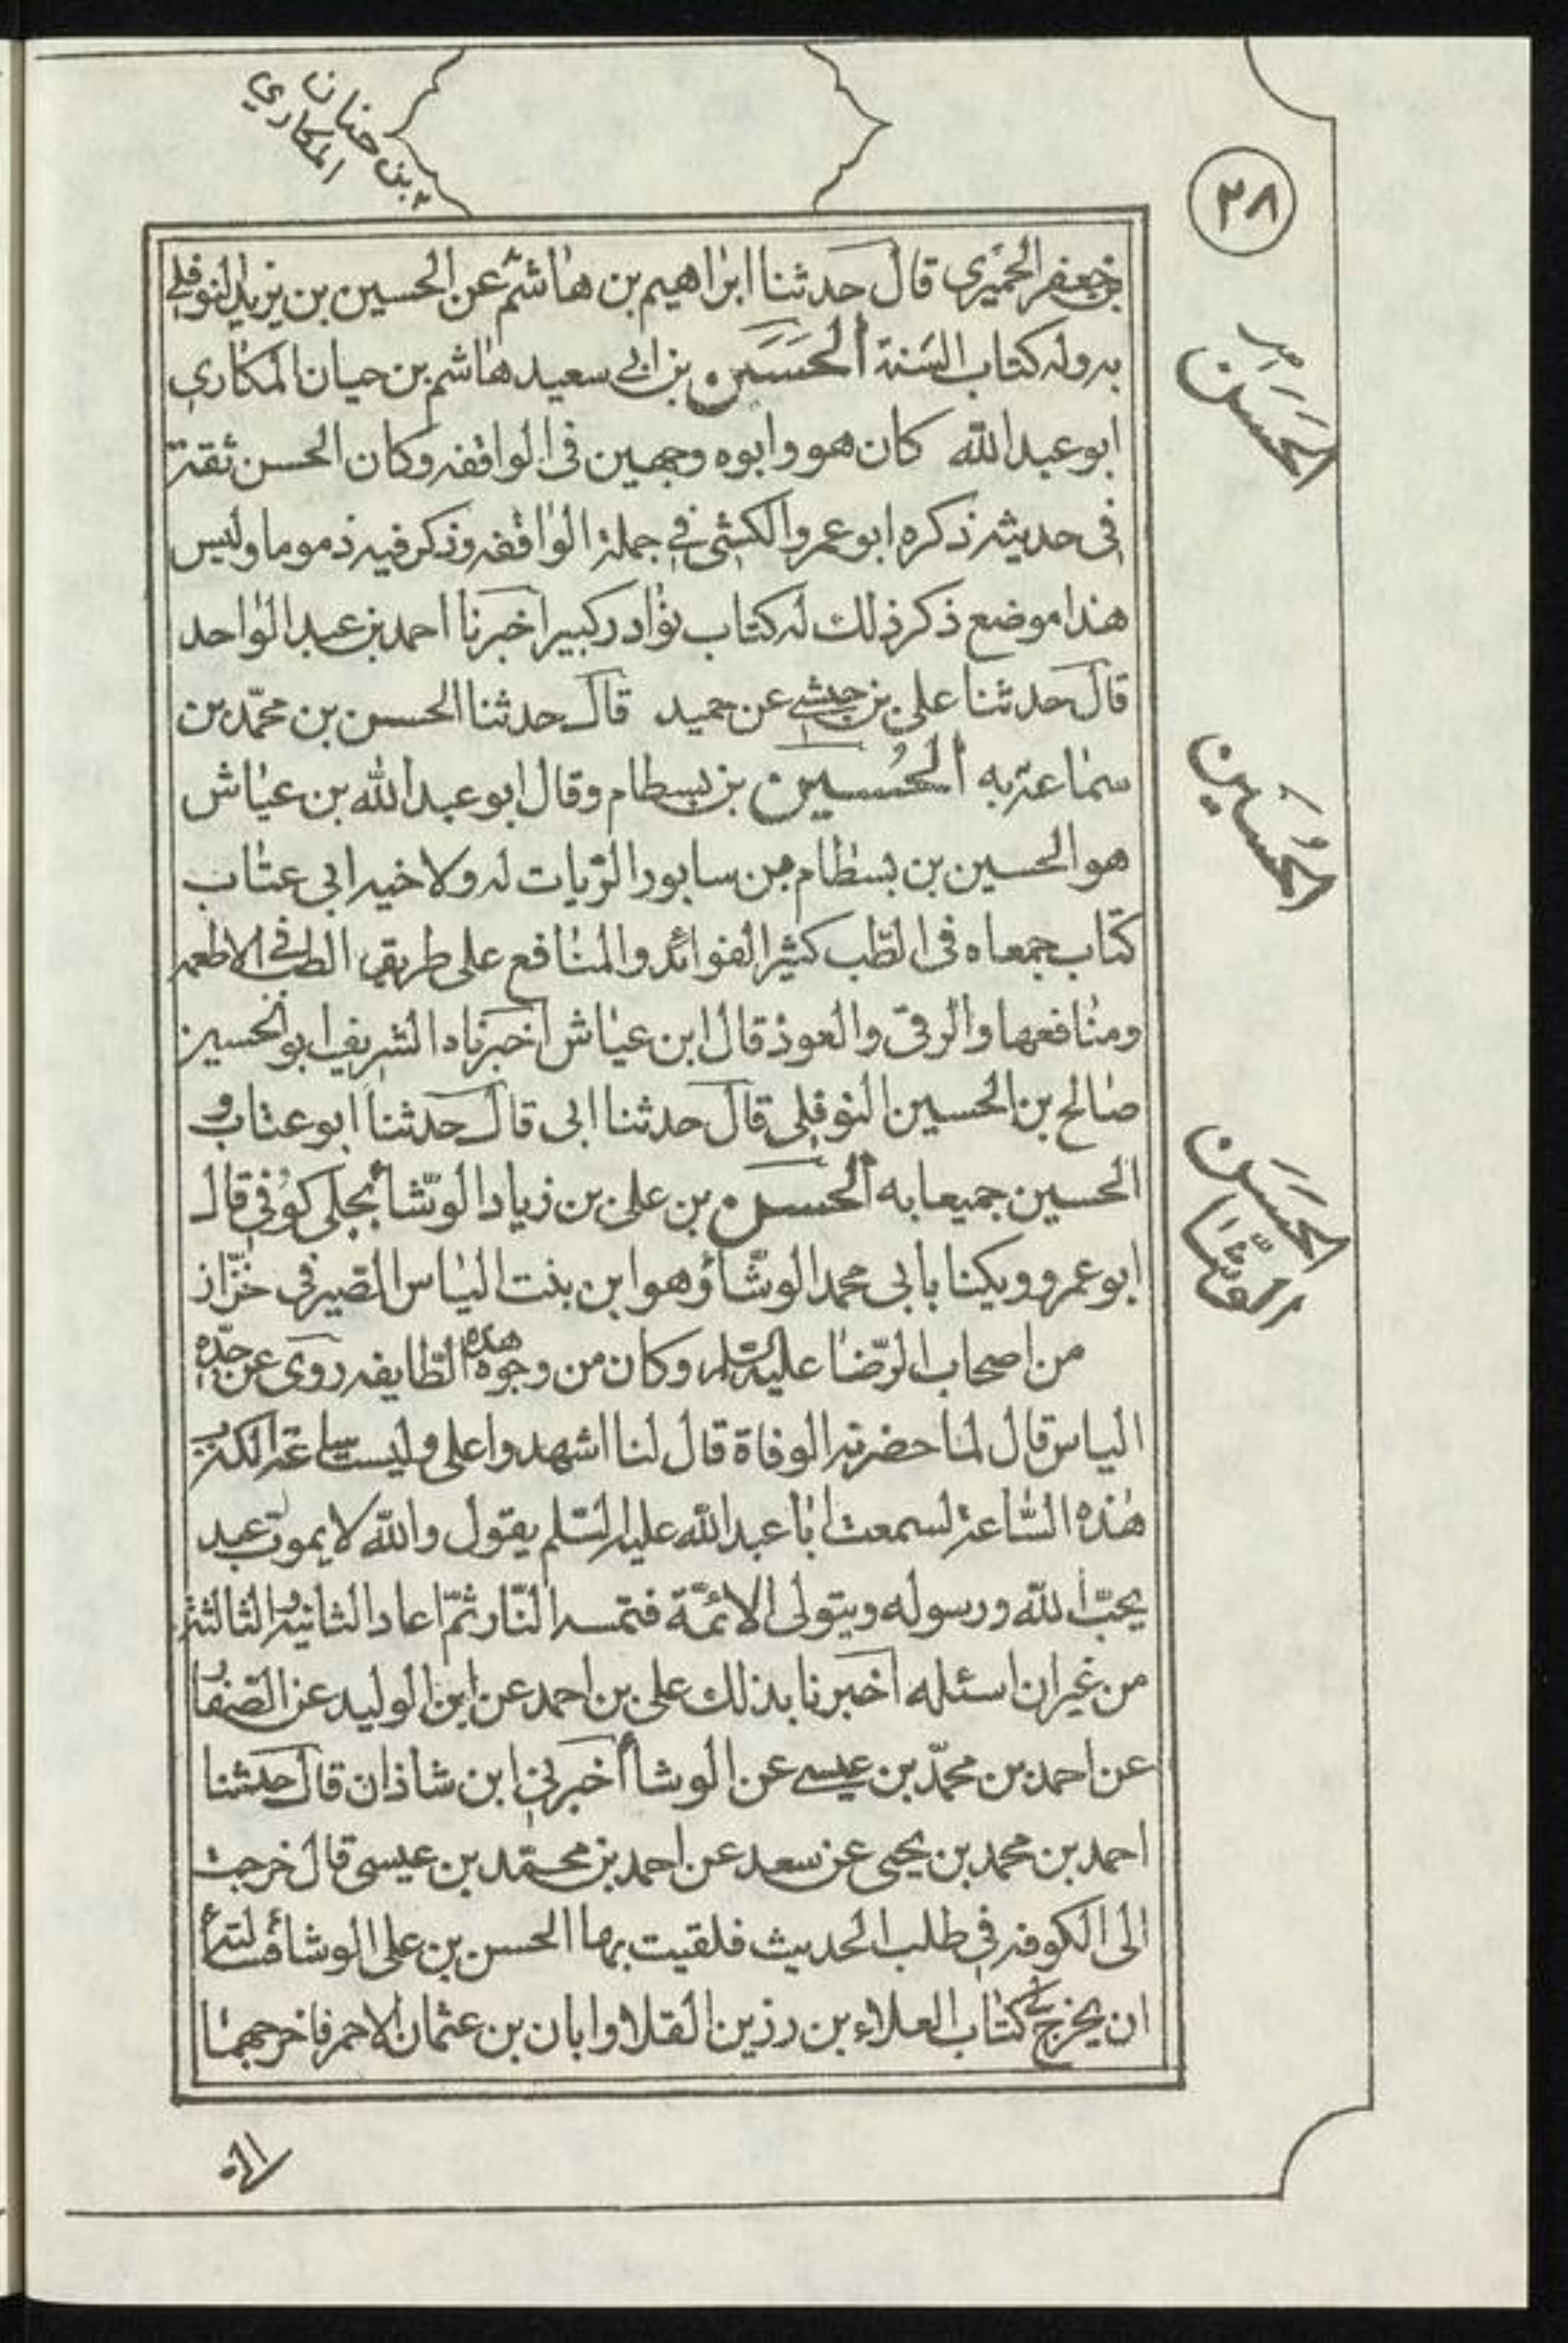 بن حنان
المكاري
٢٨
بن جعفر الحميري قال حدثنا ابراهيم بن هاشم عن الحسين بن يزيد النوفلي
به وله كتاب السنة الحسين بن ابي سعيد هاشم بن حيان المكاري
ابو عبد الله كان هو وابوه وجهين فى الواقفه وكان الحسن ثقة
فى حديثه ذكره ابو عمرو الكشى في جملة الواقفه وذكر فيه ذموما وليس
هذا موضع ذكر ذلك له كتاب نوادر كبير اخبرنا احمد بن عبد الواحد
قال حدثنا على بن حبشي عن حميد قال حدثنا الحسن بن محمّد بن
سماعة به الحُسين بن بسطام وقال ابو عبد الله بن عياش
هو الحسين بن بسطام بن سابور الزيات له ولاخيه ابى عتاب
كتاب جمعاه فى الطّب كثير الفوائد والمنافع على طريق الطب في الاطعمه
ومنافعها والرقى والعوذ قال ابن عياش اخبرناه الشريف ابو الحسين
صالح بن الحسين النوفلى قال حدثنا ابى قال حدثنا ابو عتاب و
الحسين جميعا به الحسن بن على بن زياد الوشّا بجلى كوفي قال
ابو عمرو ويكنا بابى محمد الوشّاؤ وهو ابن بنت الياس الصيرفى خزّاز
من اصحاب الرّضا عليه السلم وكان من وجوه هذه الطّايفه روى عن جدّه
الياس قال لما حضرته الوفاة قال لنا اشهدوا على وليست ساعة الكذب
هذه السّاعة لسمعت ابا عبد الله عليه السّلم يقول والله لا يموت عبد
يحبّ الله ورسوله ويتولى الائمّة فتمسه النّار ثمّ اعاد الثانية والثالثة
من غير ان اسئله اخبرنا بذلك على بن احمد عن ابن الوليد عن الصفار
عن احمد بن محمّد بن عيسى عن الوشا أخبرني ابن شاذان قال حدثنا
احمد بن محمد بن يحيى عن سعد عن احمد بن محمّد بن عيسى قال خرجت
الى الكوفه في طلب الحديث فلقيت بها الحسن بن على الوشاء فسئلته
ان يخرج لي كتاب العلاء بن رزين القلا وابان بن عثمان الاحمر فاخرجهما
الحَسَن
الحُسَين
الحَسَن
الوشّا
الى